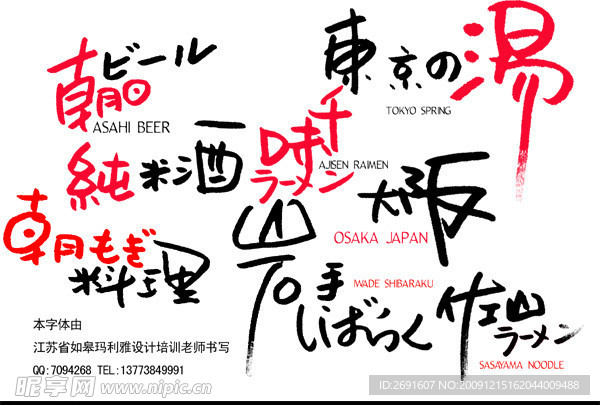 朝日ビール
ASAHI BEER
東京の湯
TOKYO SPRING
千味ラーメン
AJISEN RAIMEN
純米酒
大阪
OSAKA JAPAN
朝月もぎ料理
岩手いばらく
WADE SHIBARAKU
佐山ラーメン
SASAYAMA NOODLE
本字体由
江苏省如皋玛利雅设计培训老师书写
QQ:7094268 TEL:13773849991
昵享网 www.nipic.cn
ID:2691607 NO:20091215162044009488